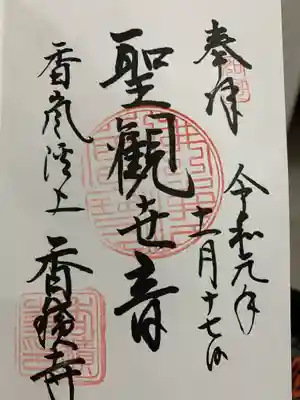 奉拝
令和元年
十一月十七日
聖観世音
香嵐渓上
香積寺